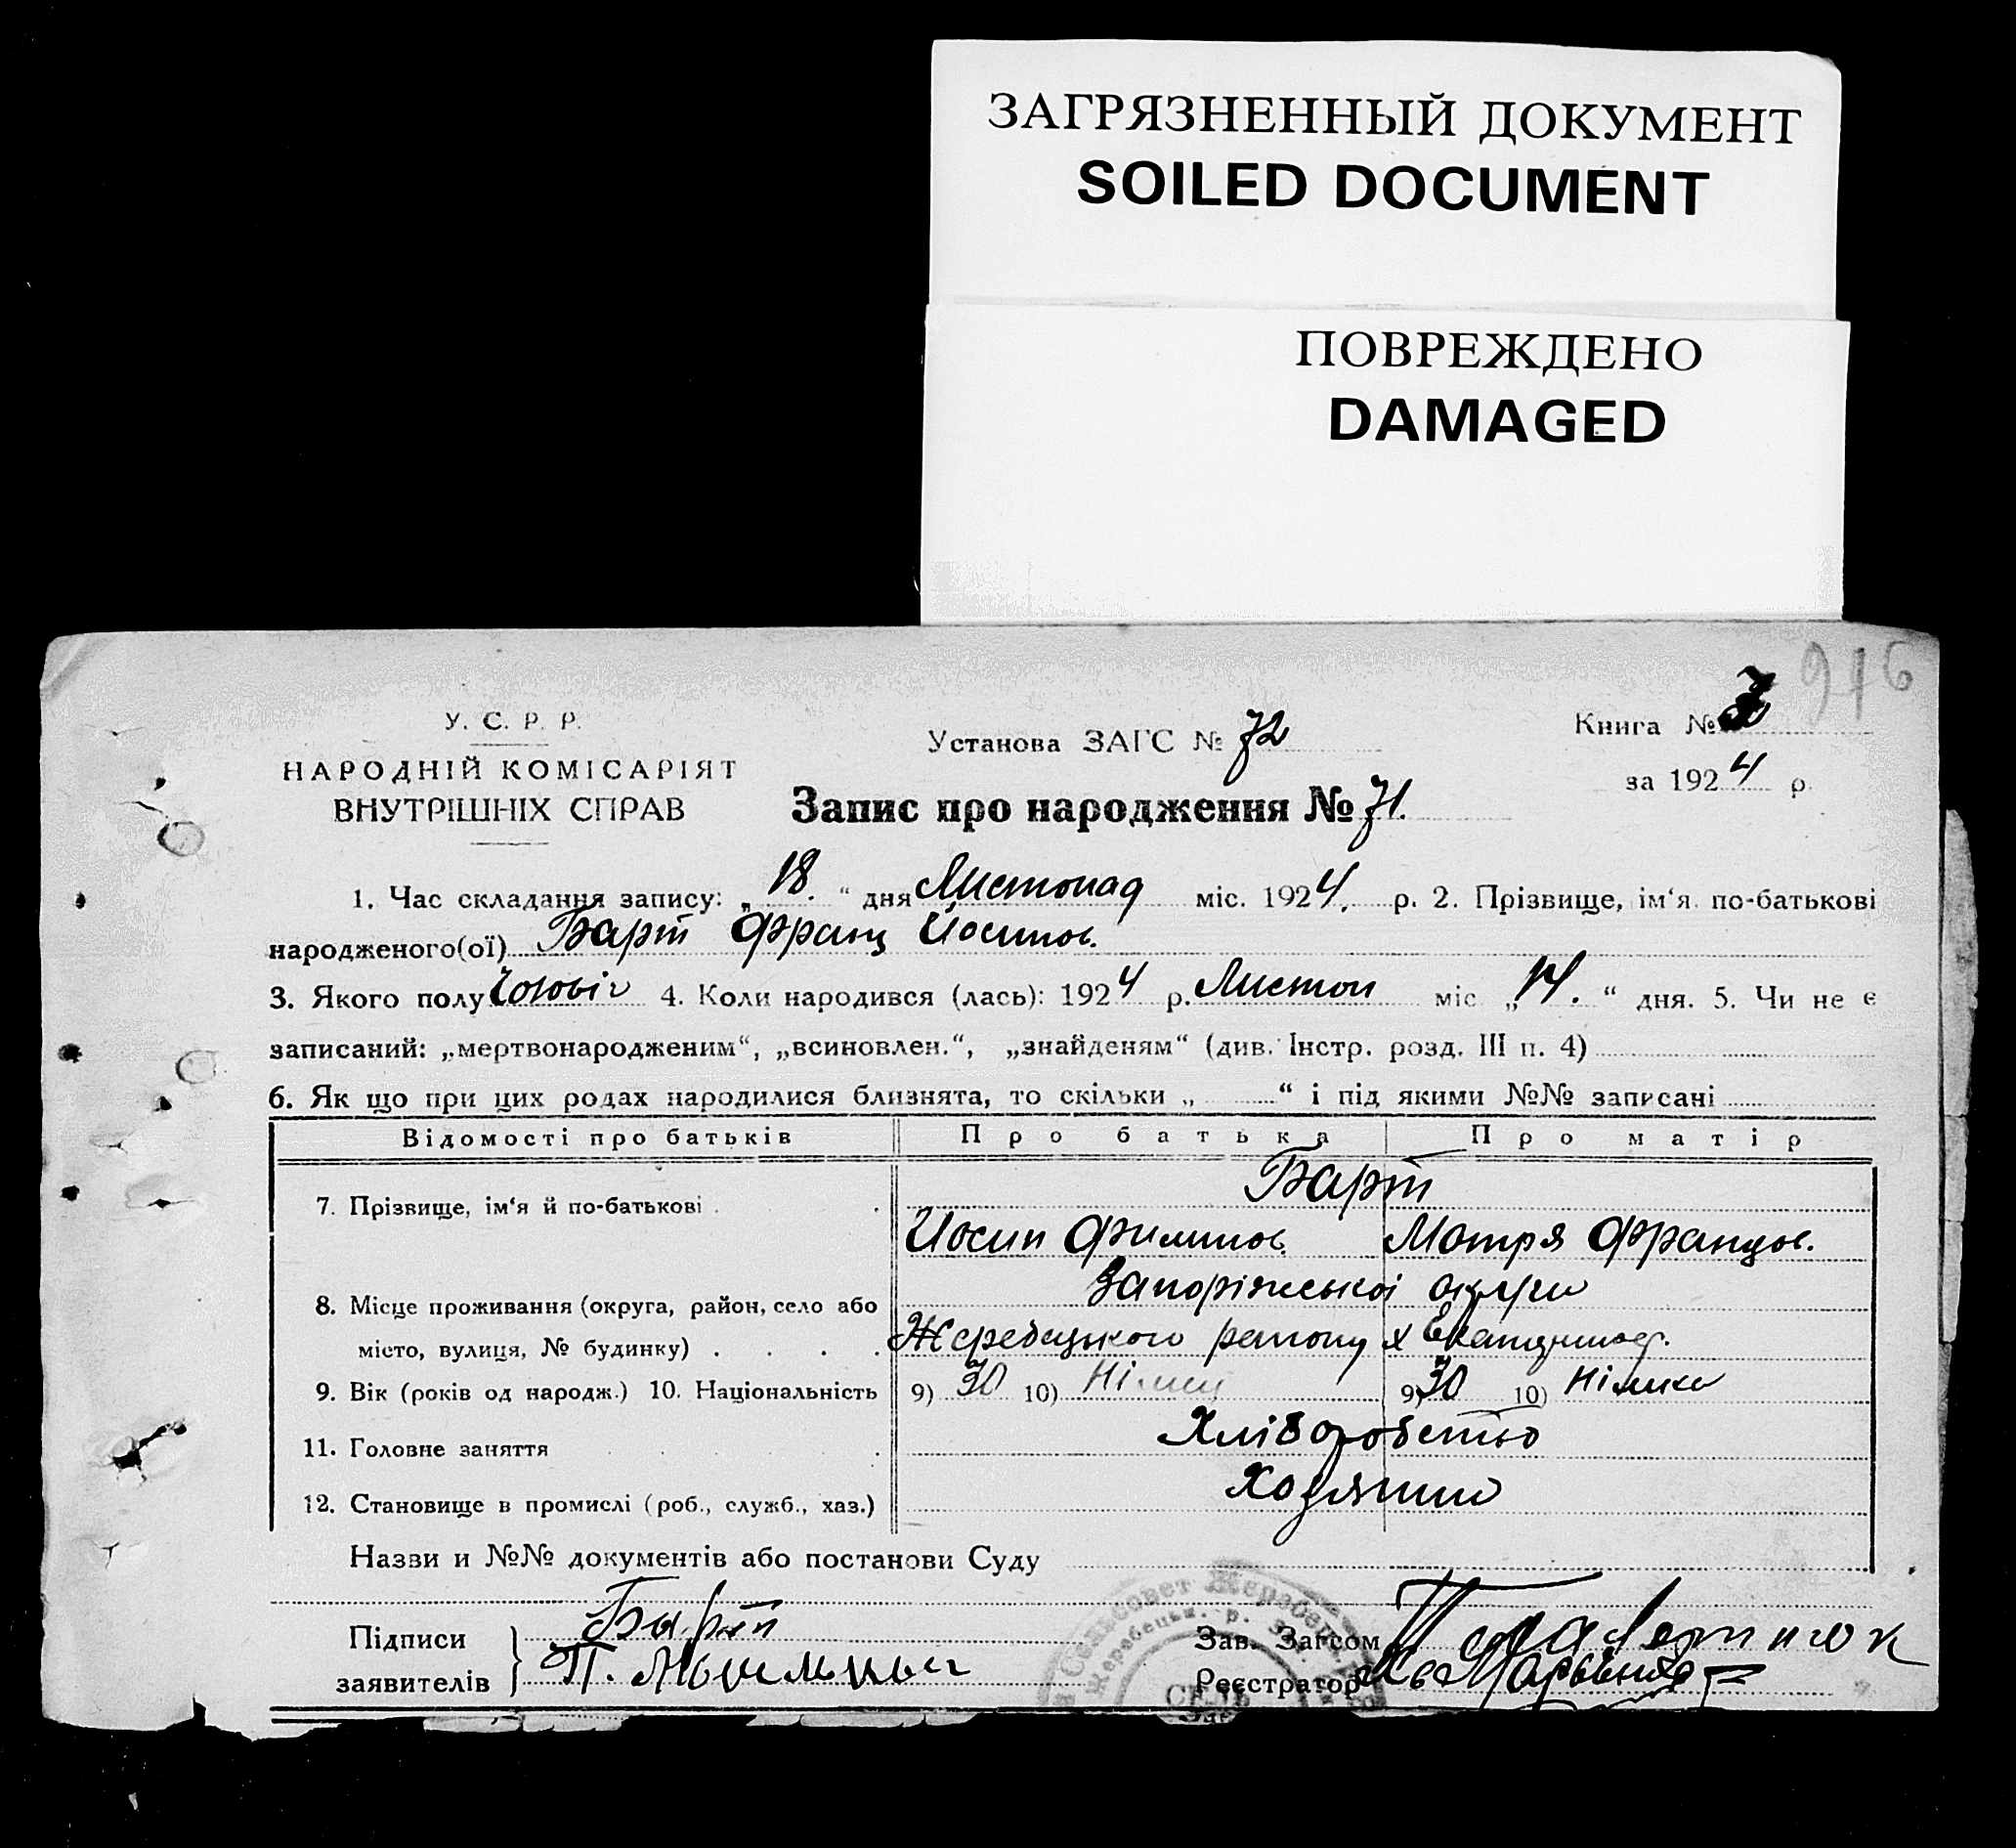 ЗАГРЯЗНЕННЫЙ ДОКУМЕНТ
SOILED DOCUMENT
ПОВРЕЖДЕНО
DAMAGED
916
У. С. Р. Р.
НАРОДНІЙ КОМІСАРІЯТ
ВНУТРІШНІХ СПРАВ
Установа ЗАГС № 72
Запис про народження № 71.
Книга №
за 1924 р.
1. Час складання запису: „18.“ дня Листопад міс. 1924. р. 2. Прізвище, ім‘я по-батькові
народженого(ої) Барт Франц Йосипов.
3. Якого полу Чоловіч 4. Коли народився (лась): 1924 р. Листоп міс „14.“ дня. 5. Чи не є
записаний: „мертвонародженим“, „всиновлен.“, „знайденям“ (див. Інстр. розд. III п. 4)
6. Як що при цих родах народилися близнята, то скільки „ “ і під якими №№ записані
Відомості про батьків Про батька Про матір
Барт
7. Прізвище, ім‘я й по-батькові
Йосип Филипов. Мотря Францов.
Запоріжської округи
8. Місце проживання (округа, район, село або
місто, вулиця, № будинку) Жеребецького району х
9. Вік (років од народж.) 10. Національність 9) 30 10) Німец 9) 30 10) Німка
11. Головне заняття Хліборобство
12. Становище в промислі (роб., служб., хаз.) Хозяин
Назви и №№ документів або постанови Суду
Підписи
заявителів
Барт
П.
Зав. Загсом
Реєстратор
Сельсовет Жеребец
Жеребецьк. р.
СЕЛЬ